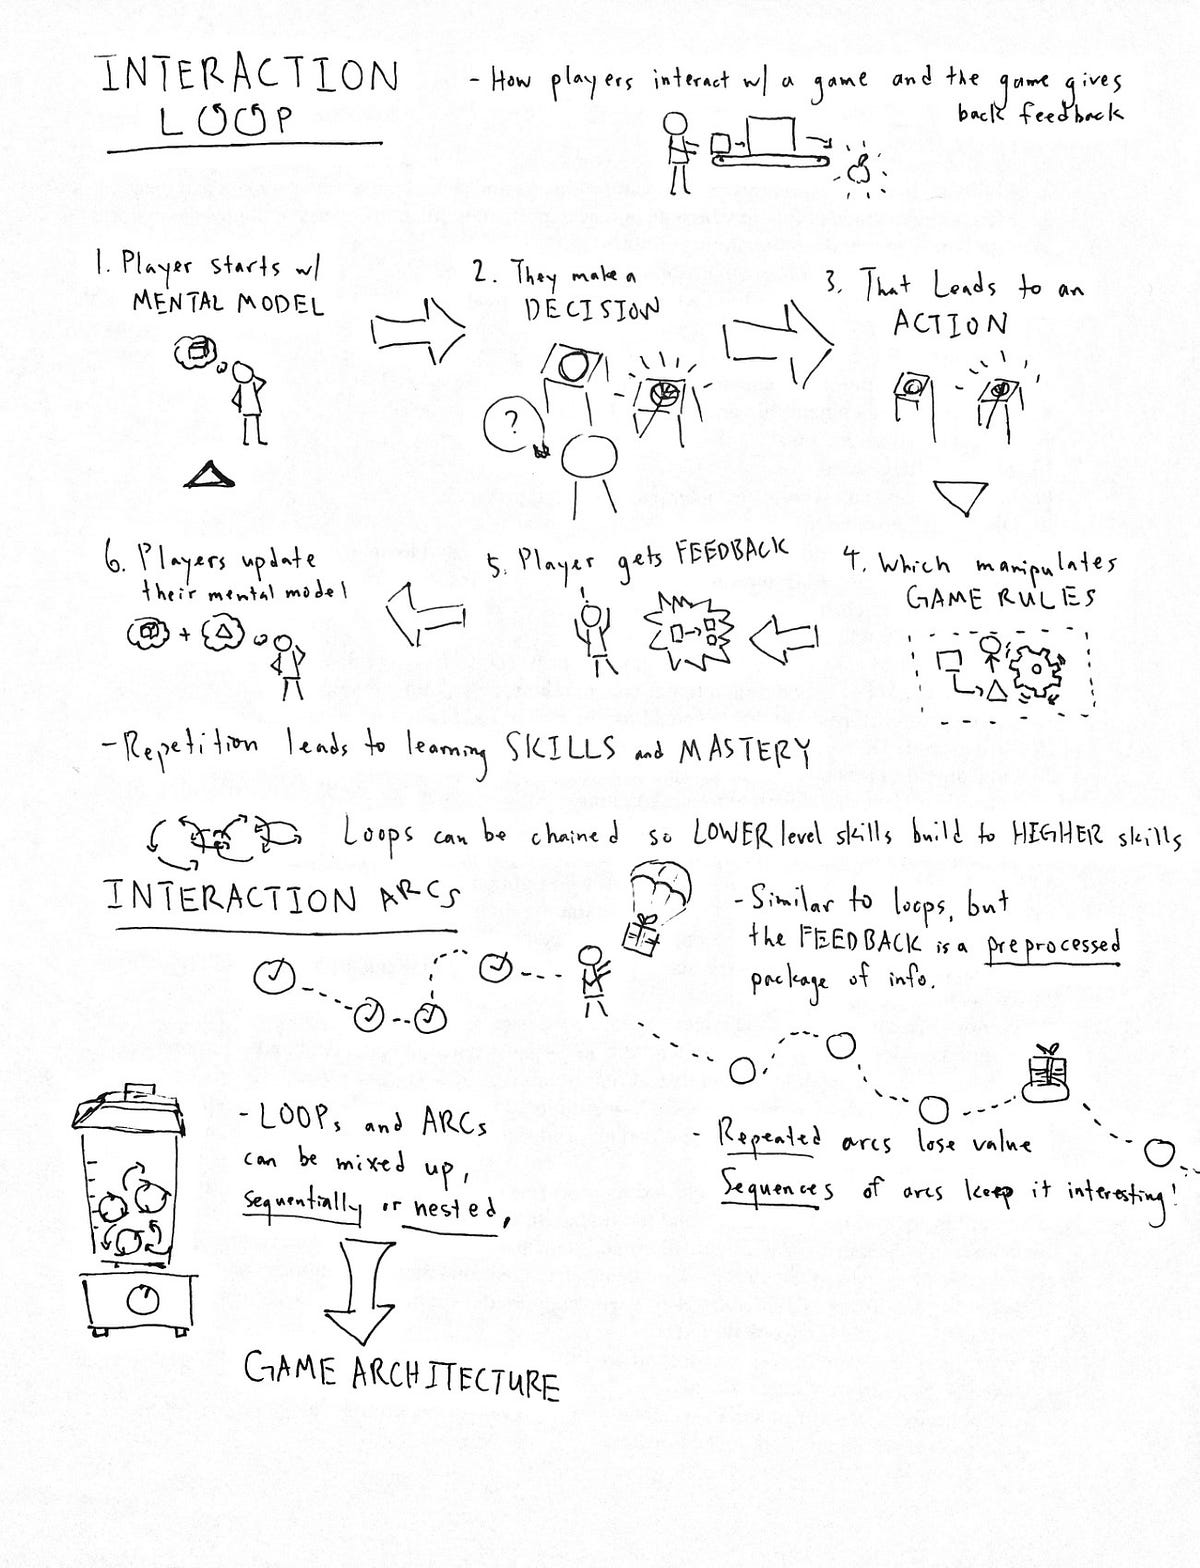 INTERACTION
LOOP
- How players interact w/ a game and the game gives
back feedback
1. Player starts w/
MENTAL MODEL
2. They make a
DECISION
3. That Leads to an
ACTION
?
6. Players update
their mental model
+
5. Player gets FEEDBACK
4. Which manipulates
GAME RULES
- Repetition leads to learning SKILLS and MASTERY
Loops can be chained so LOWER level skills build to HIGHER skills
INTERACTION ARCS
- Similar to loops, but
the FEEDBACK is a preprocessed
package of info.
- LOOPs and ARCs
can be mixed up,
sequentially or nested,
- Repeated arcs lose value
Sequences of arcs keep it interesting!
GAME ARCHITECTURE